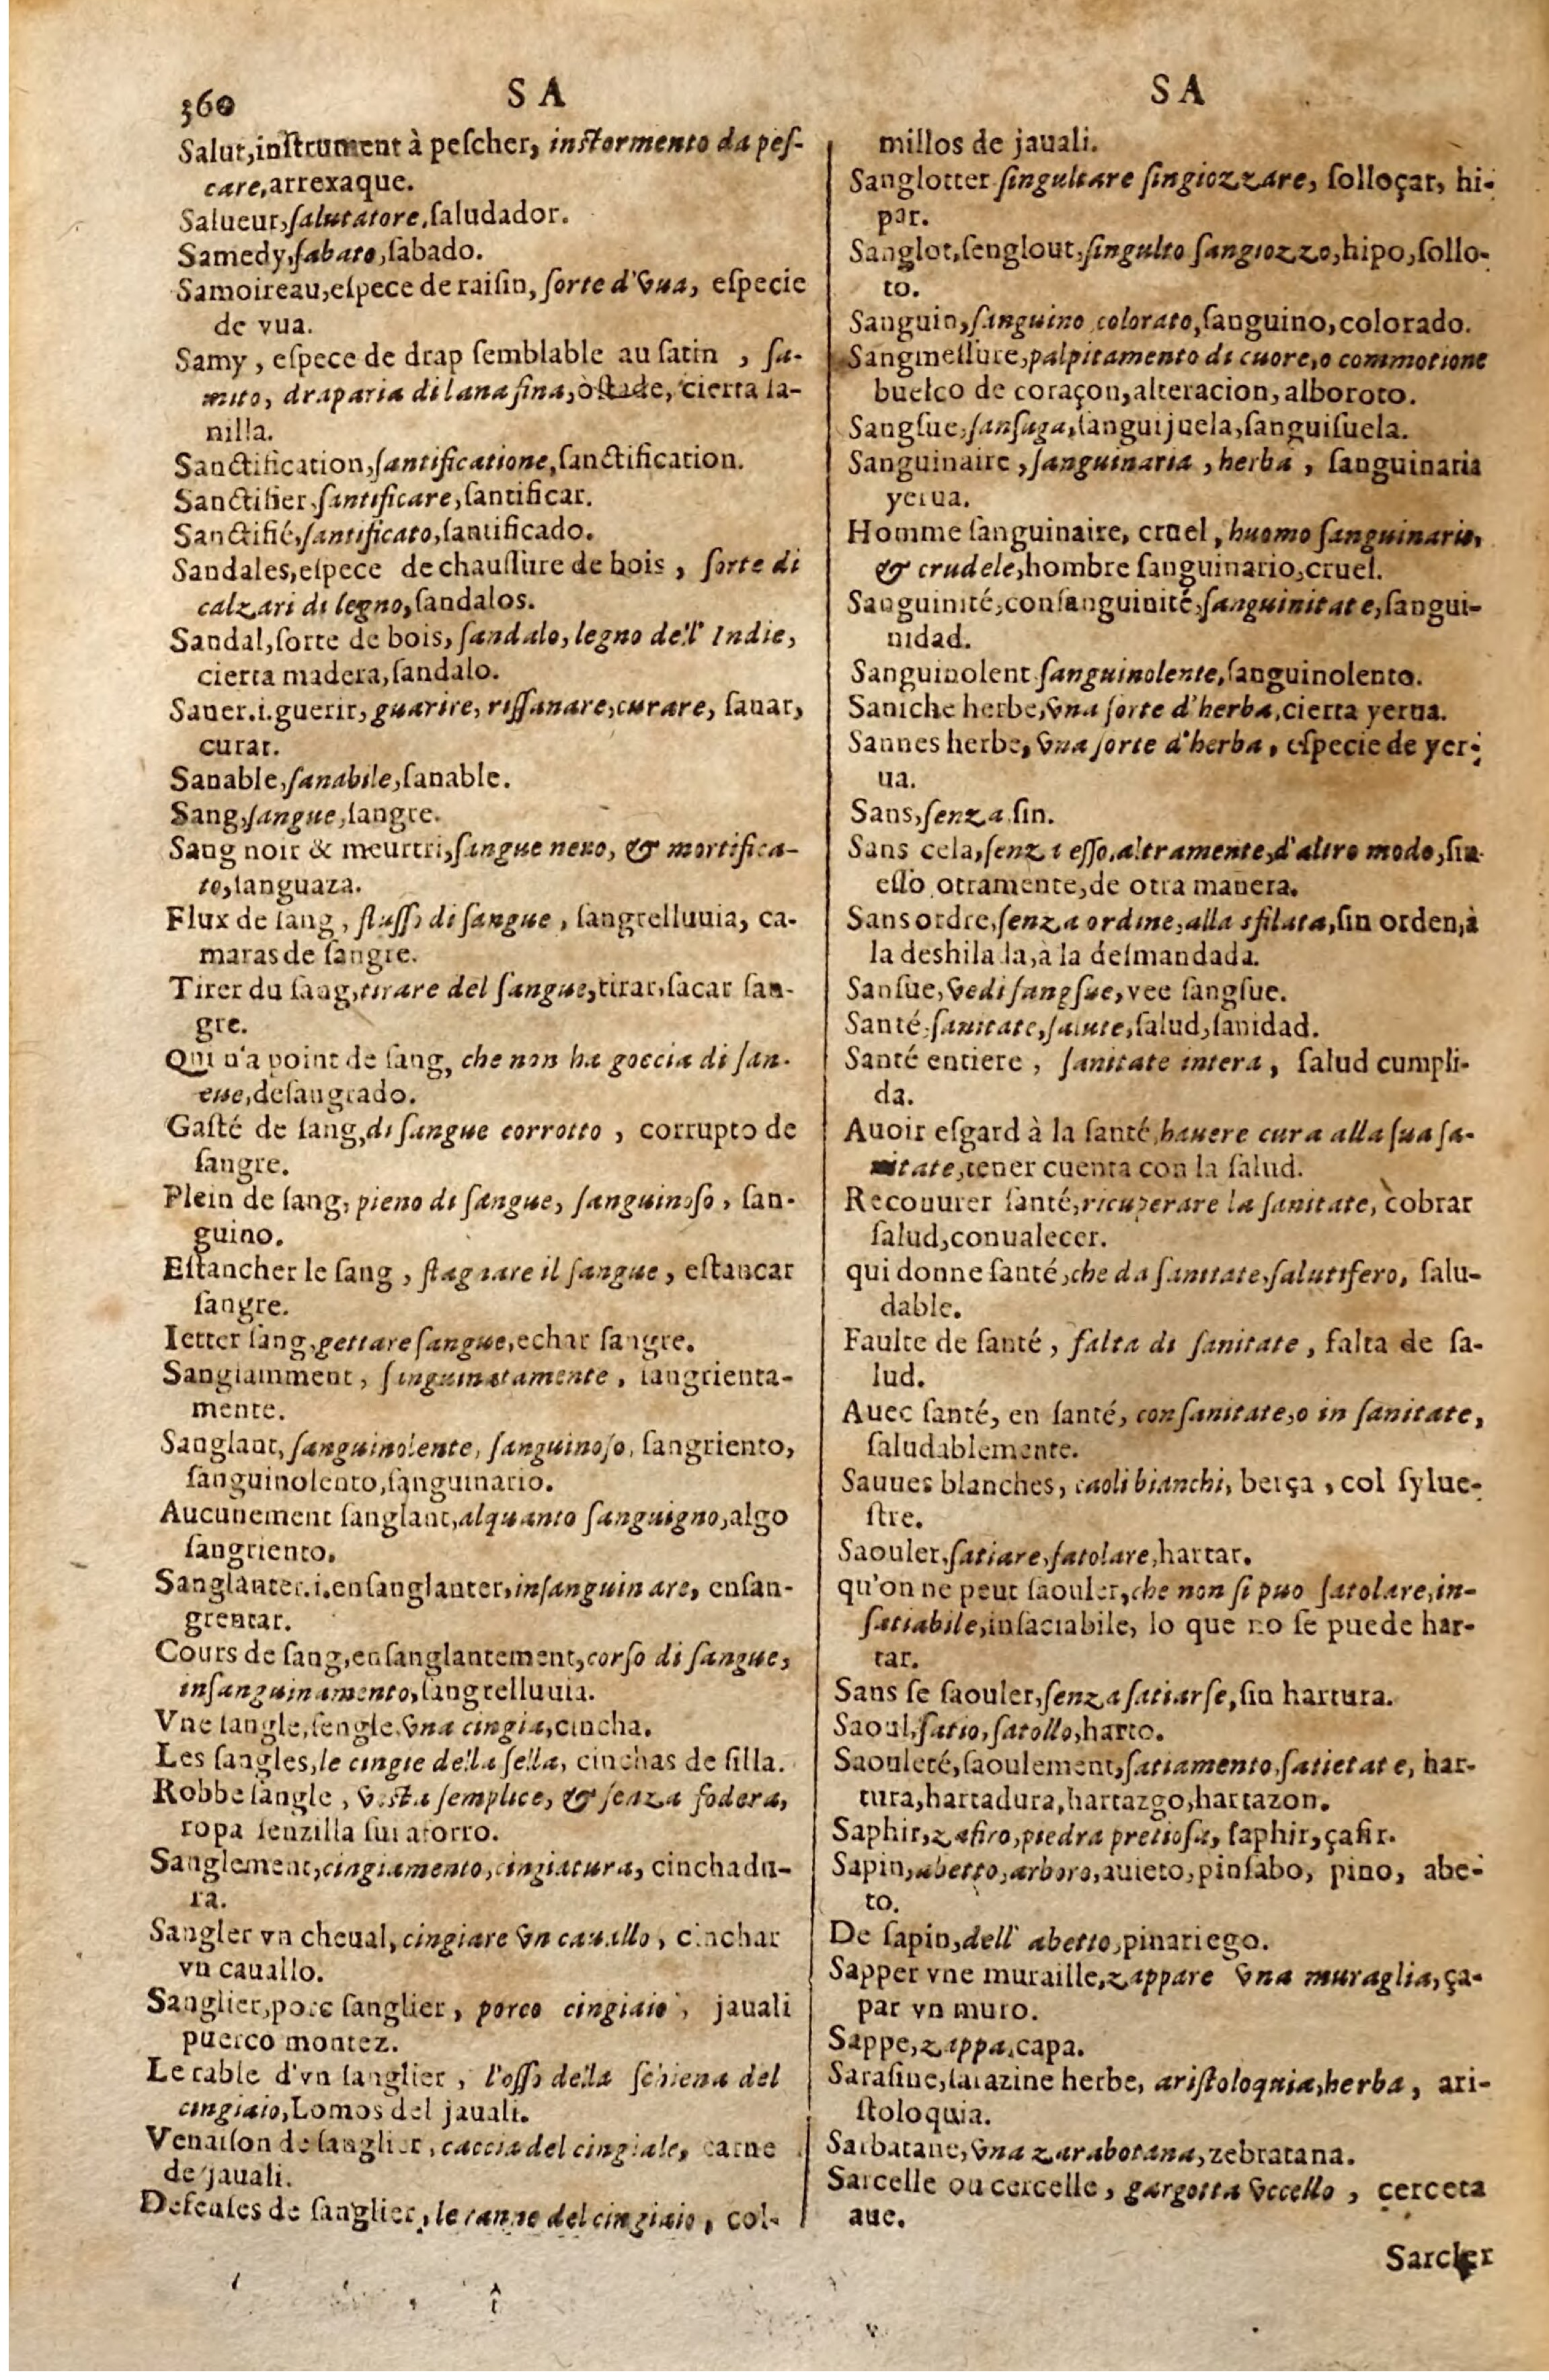 360 SA SA
Salut,inſtrument à peſcher, inſtormento da peſ-
care,arrexaque.
Salueur,ſalutatore,ſaludador.
Samedy,ſabato,ſabado.
Samoireau,eſpece de raiſin, ſorte d'vua, eſpecie
de vua.
Samy, eſpece de drap ſemblable au ſatin, ſa-
mito, draparia di lana fina,oſtade, cierta la-
nilla.
Sanctification,ſantificatione,ſanctification.
Sanctifier,ſantificare,ſantificar.
Sanctifié,ſantificato,ſantificado.
Sandales,eſpece de chauſſure de bois, ſorte di
calzari di legno,ſandalos.
Sandal,ſorte de bois, ſandalo, legno dell' Indie,
cierta madera,ſandalo.
Saner.i.guerir, guarire, riſſanare,curare, ſanar,
curar.
Sanable,ſanabile,ſanable.
Sang,ſangue,ſangre.
Sang noir & meurtri,ſangue nero, & mortifica-
to,ſanguaza.
Flux de ſang, fluſſo di ſangue, ſangrelluuia, ca-
maras de ſangre.
Tirer du ſang,tirare del ſangue,tirar,ſacar ſan-
gre.
Qui n'a point de ſang, che non ha goccia di ſan-
gue,deſangrado.
Gaſté de ſang,di ſangue corrotto, corrupto de
ſangre.
Plein de ſang, pieno di ſangue, ſanguinoſo, ſan-
guino.
Eſtancher le ſang, ſtagnare il ſangue, eſtancar
ſangre.
Ietter ſang,gettare ſangue,echar ſangre.
Sanglamment, ſinguinatamente, ſangrienta-
mente.
Sanglant, ſanguinolente, ſanguinoſo, ſangriento,
ſanguinolento,ſanguinario.
Aucunement ſanglant,alquanto ſanguigno,algo
ſangriento.
Sanglanter.i.enſanglanter,inſanguinare, enſan-
grentar.
Cours de ſang,enſanglantement,corſo di ſangue,
inſanguinamento,ſangrelluuia.
Vne ſangle,ſengle,vna cingia,cincha.
Les ſangles,le cingie della ſella, cinchas de ſilla.
Robbe ſangle, veſta ſemplice, & ſenza fodera,
ropa ſenzilla ſin aforro.
Sanglement,cingiamento,cingiatura, cinchadu-
ra.
Sangler vn cheual, cingiare vn cauallo, cinchar
vn cauallo.
Sanglier,porc ſanglier, porco cingiaio, jauali
puerco montez.
Le rable d'vn ſanglier, l'oſſo della ſchiena del
cingiaio,Lomos del jauali.
Venaiſon de ſanglier, caccia del cingiale, carne
de jauali.
Defenſes de ſanglier, le zanne del cingiaio, col-
millos de jauali.
Sanglotter ſingultare ſingiozzare, ſolloçar, hi-
par.
Sanglot,ſenglout,ſingulto ſangiozzo,hipo,ſollo-
to.
Sanguin,ſanguino colorato,ſanguino,colorado.
Sangmeſlure,palpitamento di cuore,o commotione
buelco de coraçon,alteracion,alboroto.
Sangſue,ſanſuga,ſanguijuela,ſanguiſuela.
Sanguinaire,ſanguinaria, herba, ſanguinaria
yerua.
Homme ſanguinaire, cruel, huomo ſanguinario,
& crudele,hombre ſanguinario,cruel.
Sanguinité,conſanguinité,ſanguinitate,ſangui-
nidad.
Sanguinolent ſanguinolente,ſanguinolento.
Saniche herbe,vna ſorte d'herba,cierta yerua.
Sannes herbe, vna ſorte d'herba, eſpecie de yer-
ua.
Sans,ſenza ſin.
Sans cela,ſenza eſſo,altramente,d'altro modo,ſin
eſſo otramente,de otra manera.
Sans ordre,ſenza ordine,alla sfilata,ſin orden,à
la deshilada,à la deſmandada.
Sanſue,vedi ſangſue,vee ſangſue.
Santé ſanitate,ſalute,ſalud,ſanidad.
Santé entiere, ſanitate intera, ſalud cumpli-
da.
Auoir eſgard à la ſanté,hauere cura alla ſua ſa-
nitate,tener cuenta con la ſalud.
Recouurer ſanté,ricuperare la ſanitate, cobrar
ſalud,conualecer.
qui donne ſanté,che da ſanitate,ſalutifero, ſalu-
dable.
Faulte de ſanté, falta di ſanitate, falta de ſa-
lud.
Auec ſanté, en ſanté, con ſanitate,o in ſanitate,
ſaludablemente.
Sauues blanches, caoli bianchi, berça, col ſylue-
ſtre.
Saouler,ſatiare,ſatolare,hartar.
qu'on ne peut ſaouler,che non ſi puo ſatolare,in-
ſatiabile,inſaciabile, lo que no ſe puede har-
tar.
Sans ſe ſaouler,ſenza ſatiarſe,ſin hartura.
Saoul,ſatio,ſatollo,harto.
Saouleté,ſaoulement,ſatiamento,ſatietate, har-
tura,hartadura,hartazgo,hartazon.
Saphir,zafiro,piedra pretioſa, ſaphir,çafir.
Sapin,abetto,arboro,auieto,pinſabo, pino, abe-
to.
De ſapin,dell' abetto,pinariego.
Sapper vne muraille,zappare vna muraglia,ça-
par vn muro.
Sappe,zappa,capa.
Saraſine,ſarazine herbe, ariſtoloquia,herba, ari-
ſtoloquia.
Sarbatane,vna zarabotana,zebratana.
Sarcelle ou cercelle, gargotta vccello, cerceta
aue.
Sarcler